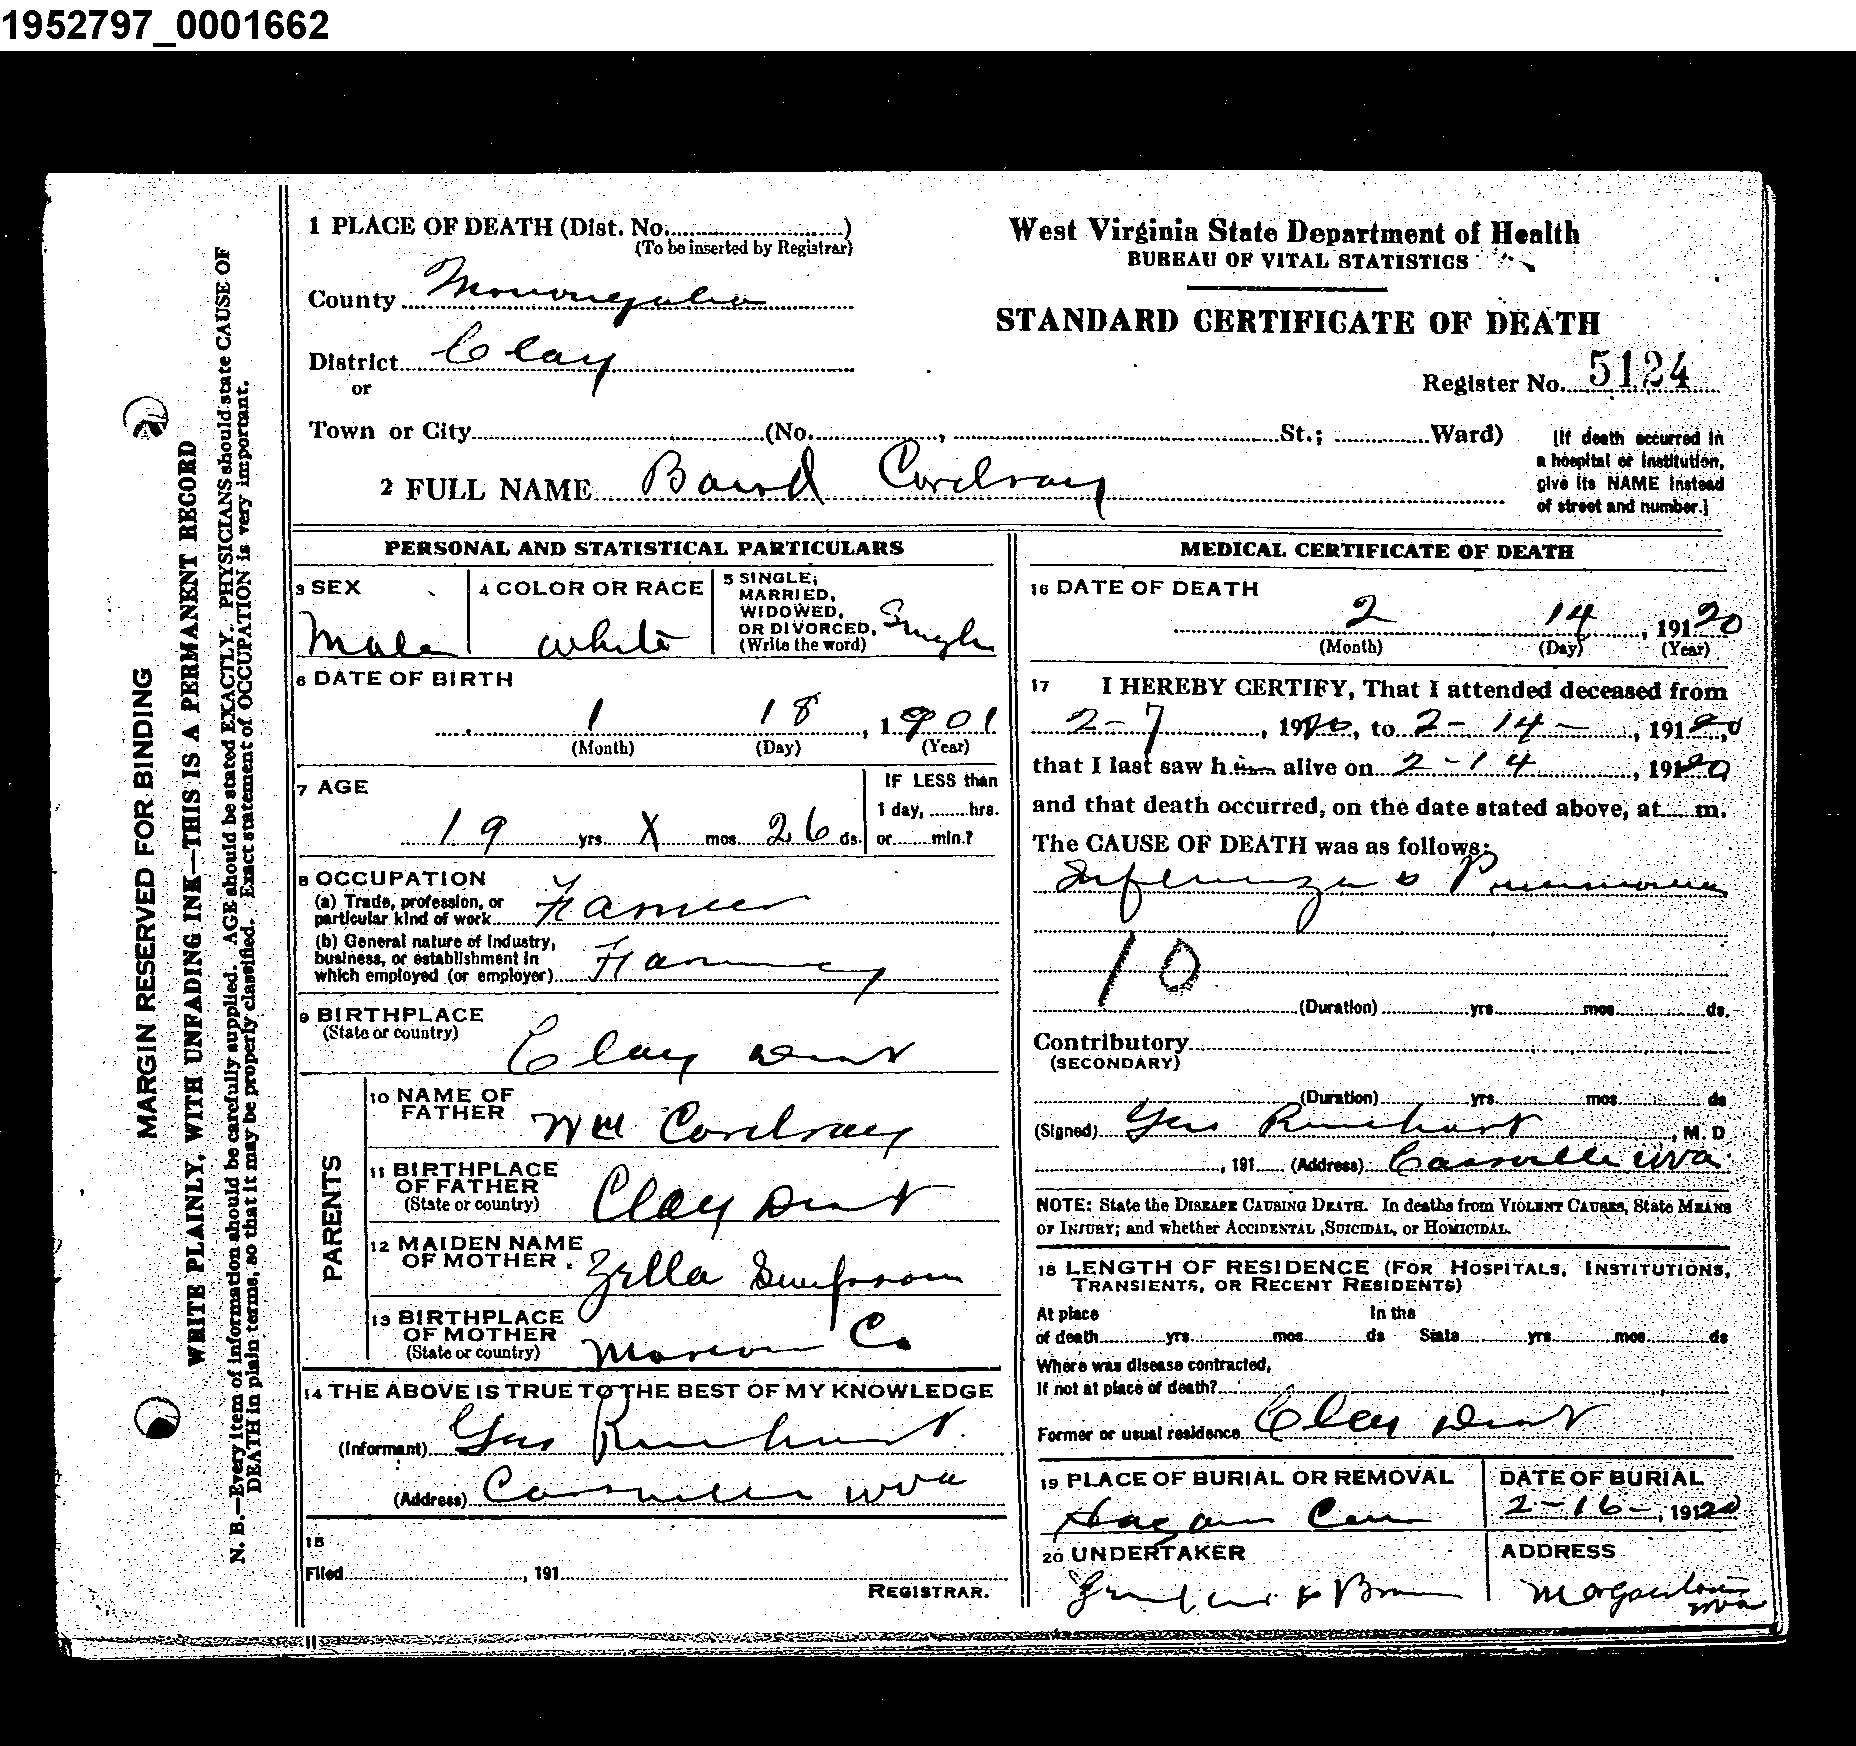 1952797_0001662
1 PLACE OF DEATH (Dist. No. )
(To be inserted by Registrar)
County Monongalia
District Clay
or
Town or City (No. , St.; Ward)
West Virginia State Department of Health
BUREAU OF VITAL STATISTICS
STANDARD CERTIFICATE OF DEATH
Register No. 5124
[If death occurred in
a hospital or institution,
give its NAME instead
of street and number.]
2 FULL NAME Baird Cordray
PERSONAL AND STATISTICAL PARTICULARS
3 SEX
Male
4 COLOR OR RACE
White
5 SINGLE,
MARRIED,
WIDOWED,
OR DIVORCED,
(Write the word)
Single
6 DATE OF BIRTH
1 18 , 1901
(Month) (Day) (Year)
7 AGE
19 yrs. X mos. 26 ds.
IF LESS than
1 day, hrs.
or min.?
8 OCCUPATION
(a) Trade, profession, or
particular kind of work Farmer
(b) General nature of Industry,
business, or establishment in
which employed (or employer) Farming
9 BIRTHPLACE
(State or country)
Clay Dist
PARENTS
10 NAME OF
FATHER
Wm Cordray
11 BIRTHPLACE
OF FATHER
(State or country)
Clay Dist
12 MAIDEN NAME
OF MOTHER
Zella Simpson
13 BIRTHPLACE
OF MOTHER
(State or country)
Marion Co
14 THE ABOVE IS TRUE TO THE BEST OF MY KNOWLEDGE
(Informant) Gus Rinehart
(Address) Cassville W Va
15
Filed , 191
REGISTRAR.
MEDICAL CERTIFICATE OF DEATH
16 DATE OF DEATH
2 14 , 1920
(Month) (Day) (Year)
17 I HEREBY CERTIFY, That I attended deceased from
2-7 , 1920, to 2-14- , 1920
that I last saw him alive on 2-14 , 1920
and that death occurred, on the date stated above, at m.
The CAUSE OF DEATH was as follows:
Influenza & Pneumonia
10
(Duration) yrs mos ds.
Contributory
(SECONDARY)
(Duration) yrs mos ds
(Signed) Gus Rinehart , M. D
, 191 (Address) Cassville W Va
NOTE: State the DISEASE CAUSING DEATH. In deaths from VIOLENT CAUSES, State MEANS
OR INJURY; and whether ACCIDENTAL, SUICIDAL, OR HOMICIDAL.
18 LENGTH OF RESIDENCE (FOR HOSPITALS, INSTITUTIONS,
TRANSIENTS, OR RECENT RESIDENTS)
At place In the
of death yrs mos ds State yrs mos ds
Where was disease contracted,
If not at place of death?
Former or usual residence Clay Dist
19 PLACE OF BURIAL OR REMOVAL
Hagan Cem
DATE OF BURIAL
2-16-, 1920
20 UNDERTAKER
& Bro
ADDRESS
Morgantown
W Va
MARGIN RESERVED FOR BINDING
WRITE PLAINLY, WITH UNFADING INK—THIS IS A PERMANENT RECORD
N. B.—Every item of information should be carefully supplied. AGE should be stated EXACTLY. PHYSICIANS should state CAUSE OF
DEATH in plain terms, so that it may be properly classified. Exact statement of OCCUPATION is very important.